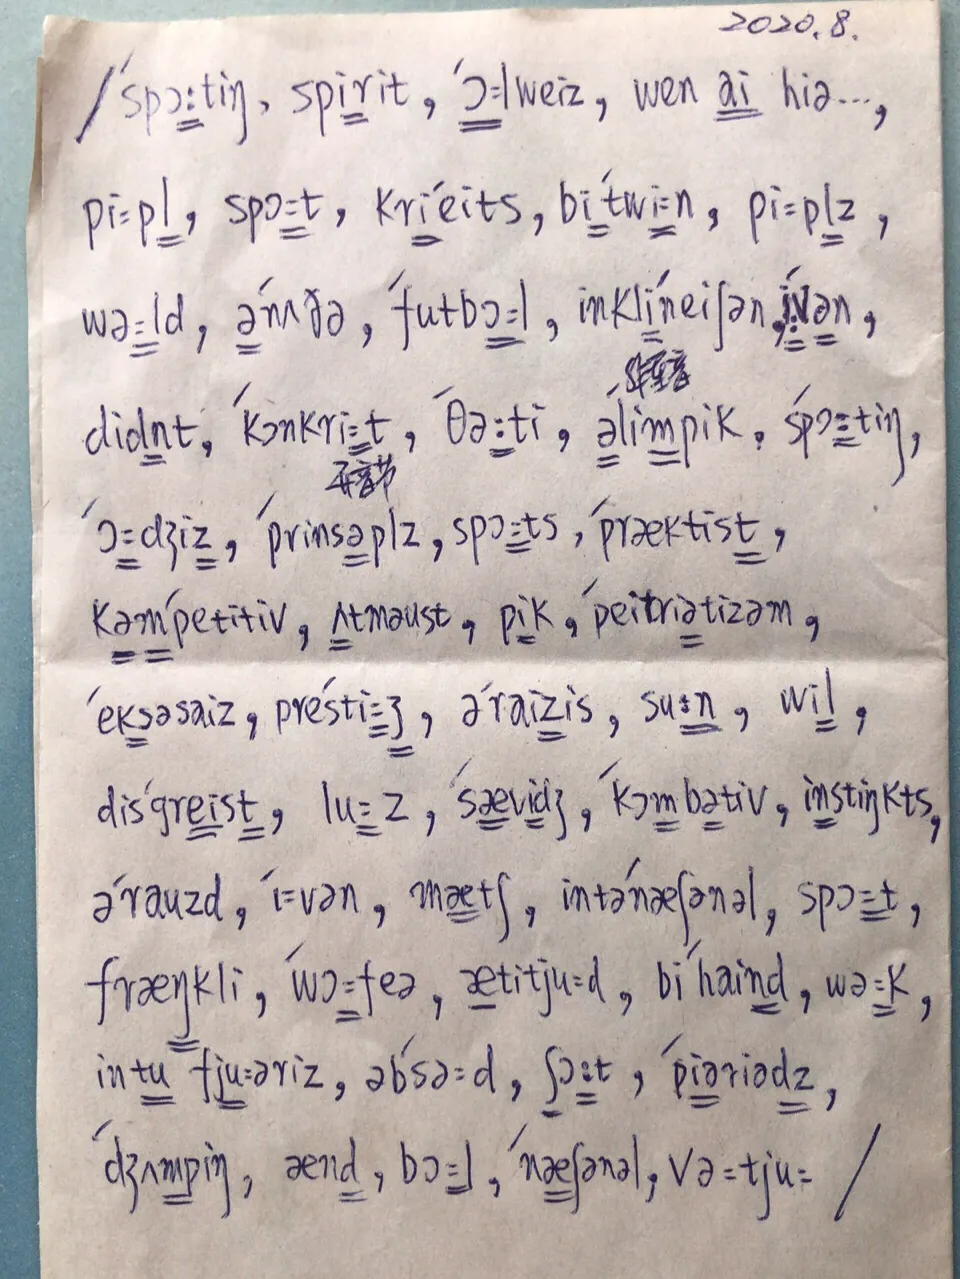 2020.8.
/ˊspɔ:tiŋ, spirit, ˊɔ=lweiz, wen ai hiə...,
pi=pl, spɔ=t, kriˊeits, biˊtwi=n, pi=plz,
wə=ld, əˊnʌðə, ˊfutbɔ=l, inkliˊneiʃən, ˊi:vən,
didnt, ˊkɔnkri=t, ˊθə:ti, əˊlimpik, ˊspɔ=tiŋ,
ˊɔ=dʒiz, ˊprinsəplz, spɔ=ts, ˊpræktist,
kəmˊpetitiv, ʌtməust, pik, ˊpeitriətizəm,
ˊeksəsaiz, presˊti=ʒ, əˊraizis, su:n, wil,
disˊgreist, lu=z, ˊsævidʒ, ˊkɔmbətiv, instiŋkts,
əˊrauzd, ˊi=vən, mætʃ, intəˊnæʃənəl, spɔ=t,
fræŋkli, ˊwɔ=feə, ætitju=d, biˊhaind, wə=k,
intu fju=əriz, əbˊsə=d, ʃɔ:t, ˊpiəriədz,
ˊdʒʌmpiŋ, ænd, bɔ=l, ˊnæʃənəl, və=tju= /